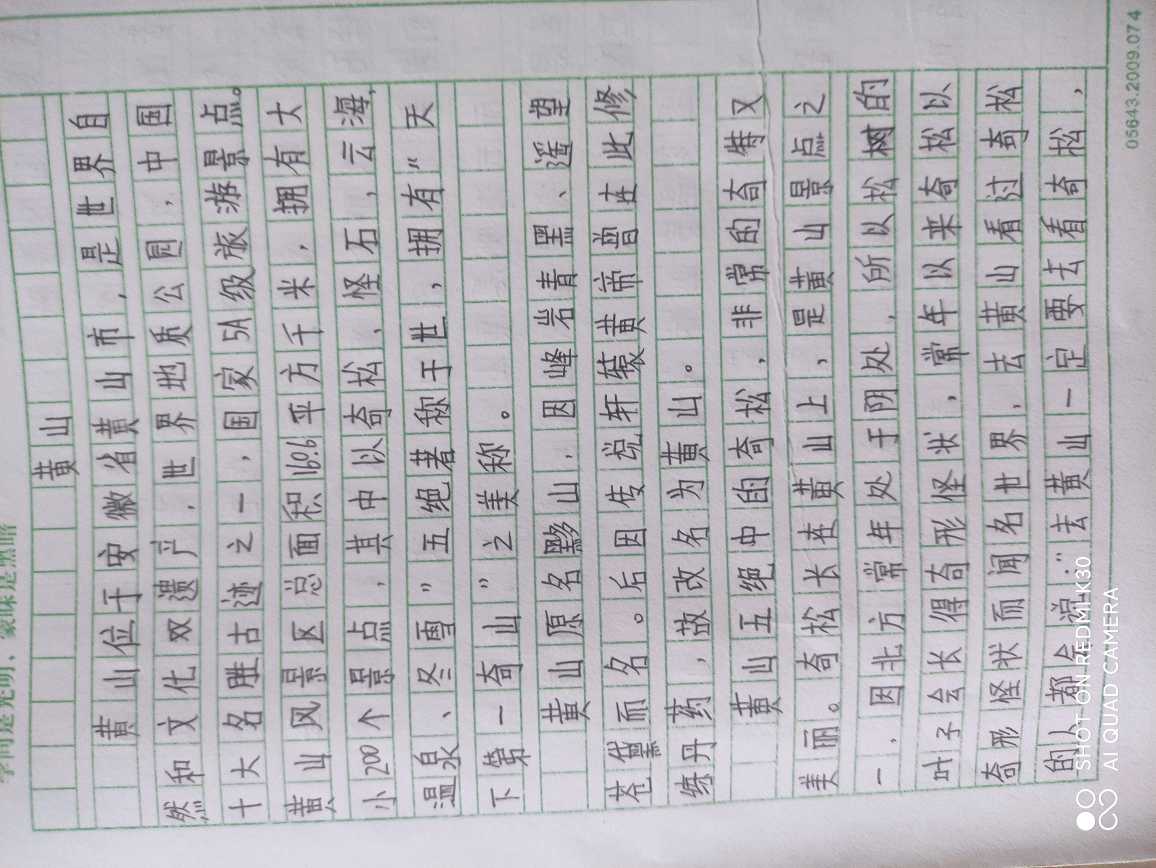 学问是光明，蒙昧是黑暗
黄山
黄山位于安徽省黄山市，是世界自
然和文化双遗产，世界地质公园，中国
十大名胜古迹之一，国家5A级旅游景点。
黄山风景区总面积160.6平方千米，拥有大
小200个景点，其中以奇松、怪石，云海，
温泉、冬雪"五绝著称于世，拥有"天
下第一奇山"之美称。
黄山原名黟山，因峰岩青黑、遥望
苍黛而名。后因传说轩辕黄帝曾在此修
练丹药，故改名为黄山。
黄山五绝中的奇松，非常的奇特又
美丽。奇松长在黄山上，是黄山景点之
一，因北方常年处于阴处，所以松树的
叶子会长得奇形怪状，常年以来奇松以
奇形怪状而闻名世界，去黄山看过奇松
的人都会说："去黄山一定要去看奇松，
05643.2009.074
SHOT ON REDMI K30
AI QUAD CAMERA